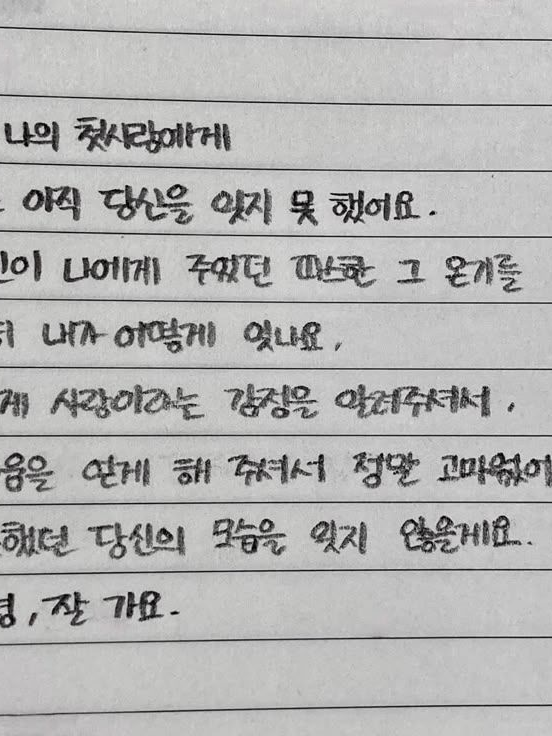 나의 첫사랑에게
아직 당신을 잊지 못 했어요.
나에게 주었던 따스한 그 온기를
내가 어떻게 잊나요,
사랑이라는 감정을 알려주셔서,
얻게 해 주셔서 정말 고마웠어
했던 당신의 모습을 잊지 않을게요.
, 잘 가요.